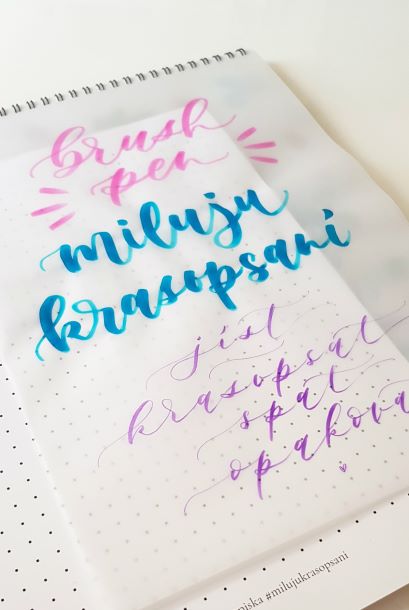 brush
pen
miluju
krasopsaní
jíst
krasopsát
spát
#milujukrasopsani